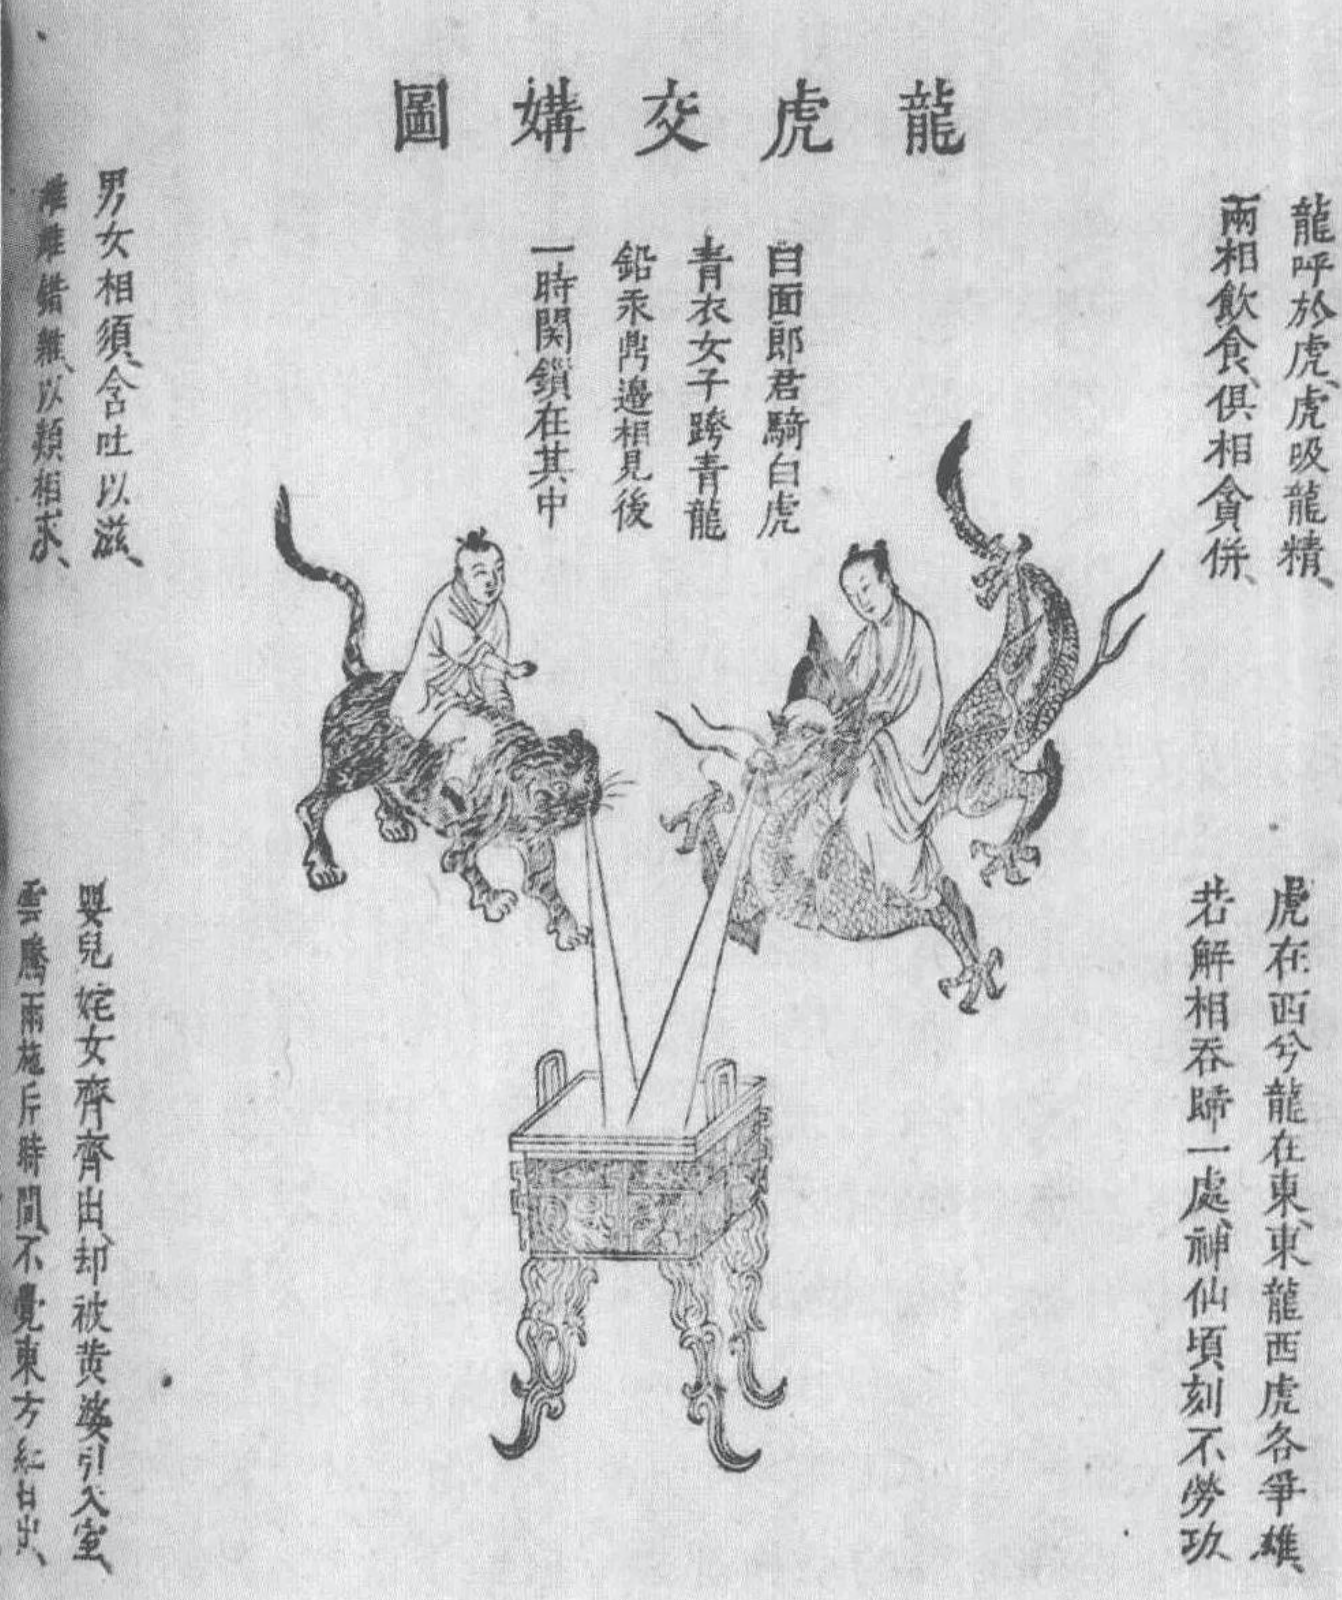 龍虎交媾圖
龍呼於虎、虎吸龍精、
兩相飲食、俱相貪併、
白面郎君騎白虎
青衣女子跨青龍
鉛汞鼎邊相見後
一時関鎖在其中
男女相須、含吐以滋、
雄雌錯雜、以類相求、
虎在西兮龍在東、東龍西虎各爭雄、
若解相吞歸一處、神仙頃刻不勞功、
嬰兒姹女齊齊出、却被黄婆引入室、
雲騰雨施片時間、不覺東方紅日出、